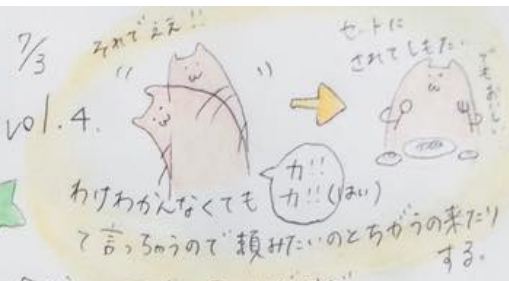 7/3
vol.4.
それでええ!!
セットに
されてしもた…
でもおいしい
カ!!
カ!!(はい)
わけわかんなくても
て言っちゃうので頼みたいのとちがうの来たり
する。